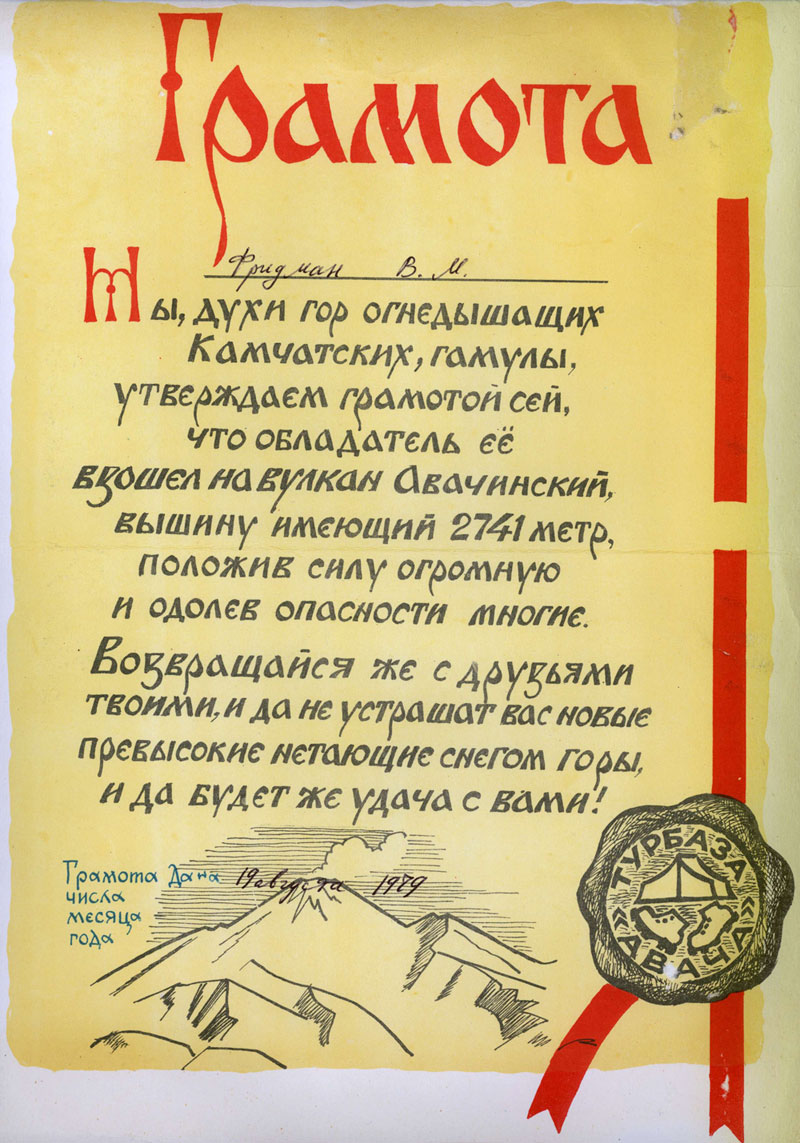 Грамота
Фридман В. М.
Мы, духи гор огнедышащих
Камчатских, гамулы,
утверждаем грамотой сей,
что обладатель её
взошел на вулкан Авачинский,
вышину имеющий 2741 метр,
положив силу огромную
и одолев опасности многие.
Возвращайся же с друзьями
твоими, и да не устрашат вас новые
превысокие нетающие снегом горы,
и да будет же удача с вами!
Грамота дана 19 августа 1979
числа
месяца
года
ТУРБАЗА
АВАЧА